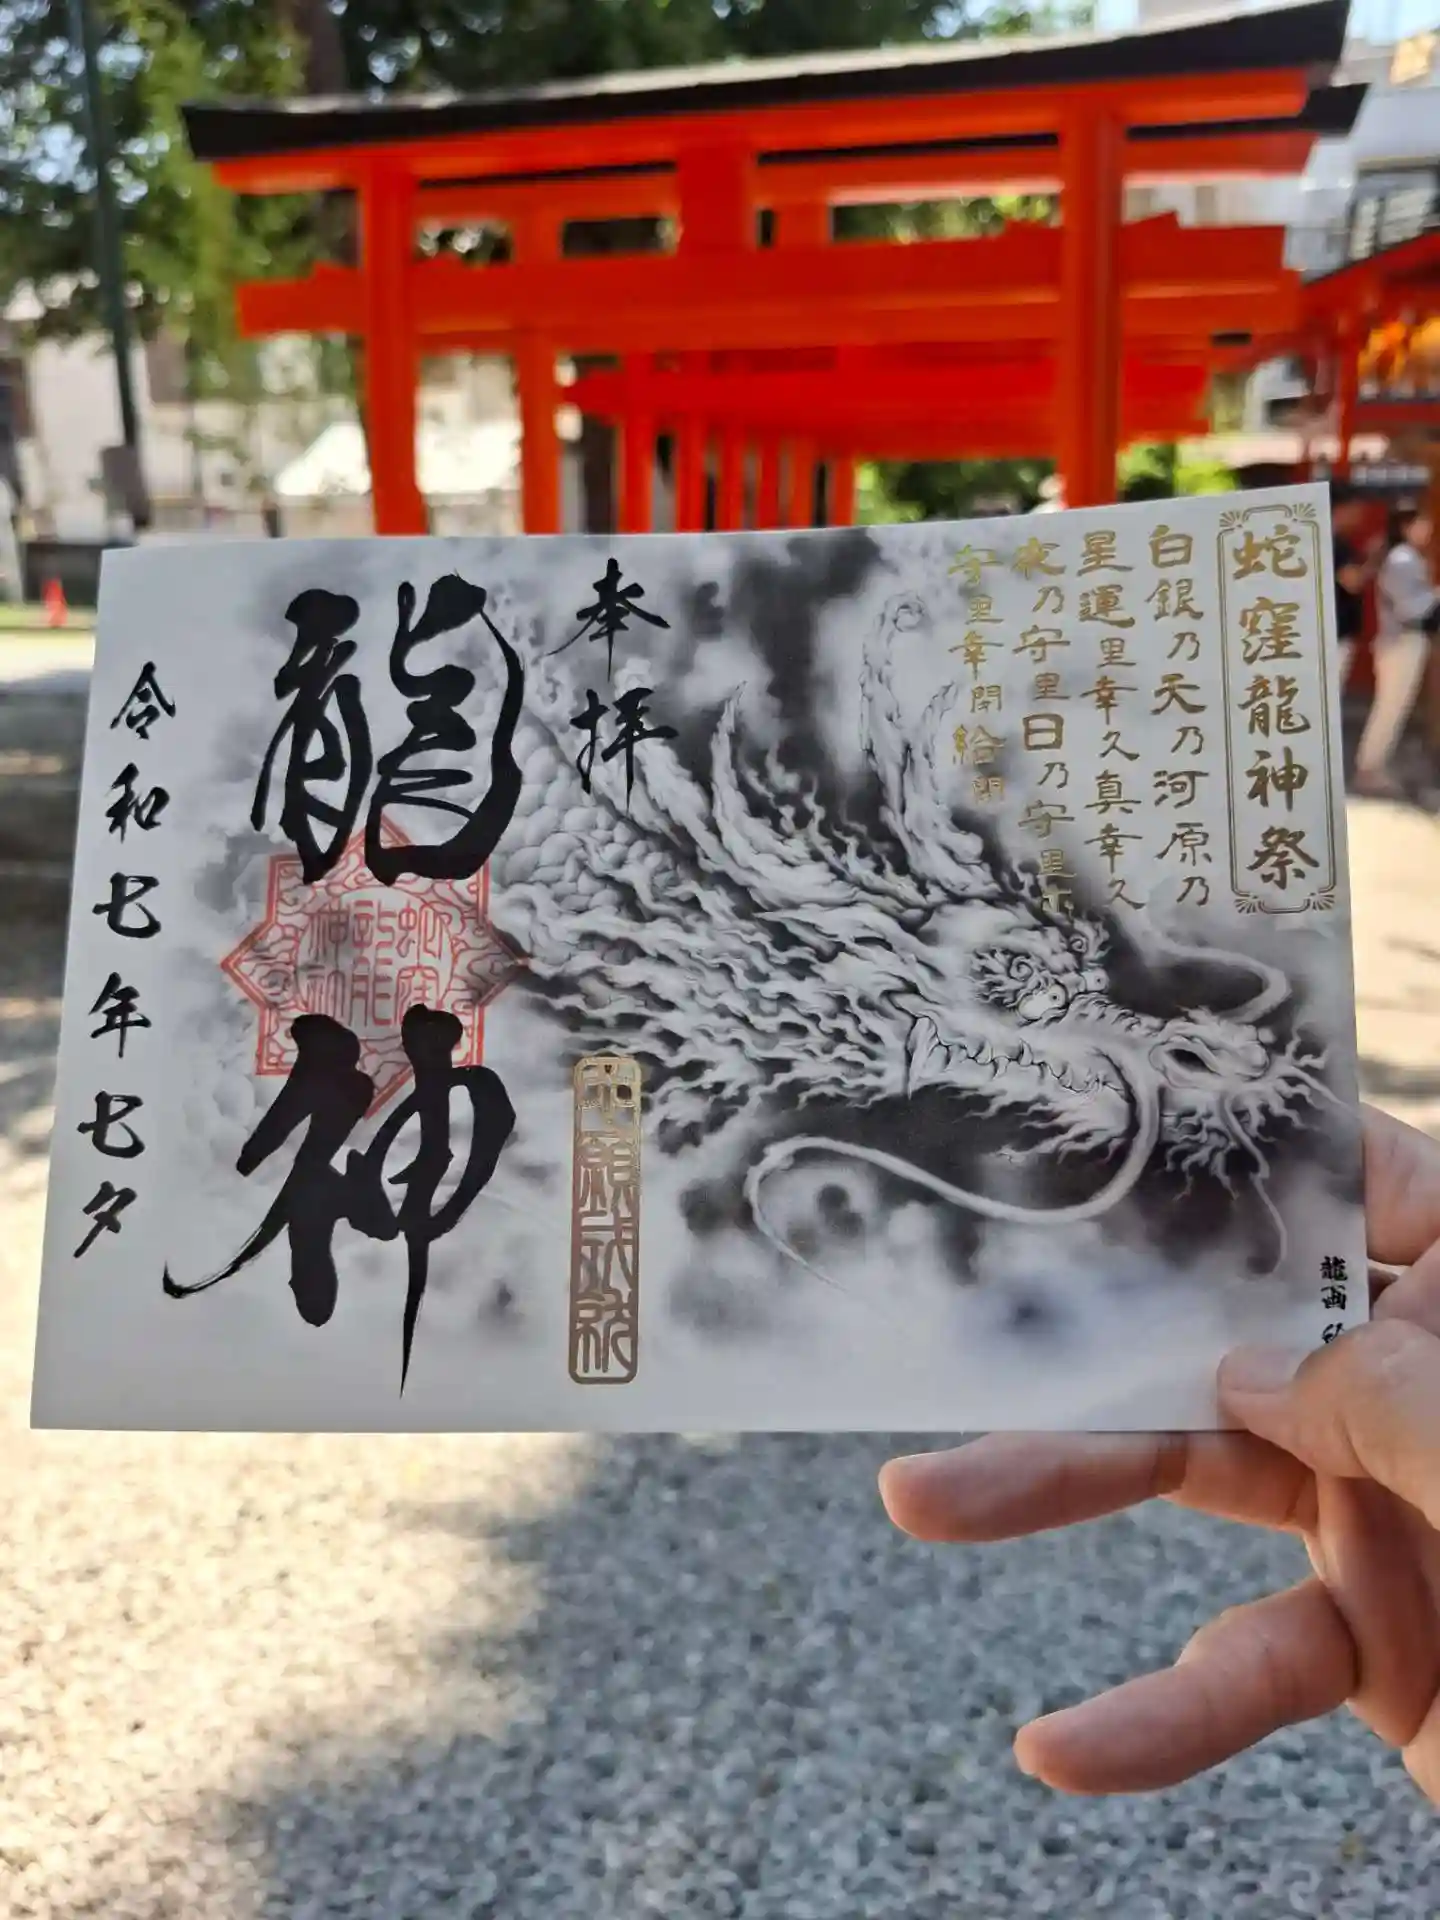 蛇窪龍神祭
白銀乃天乃河原乃
星運里幸久真幸久
夜乃守里日乃守里尓
守里幸閇給閇
奉拝
心願成就
龍神
蛇窪龍神神社
令和七年七夕
龍画